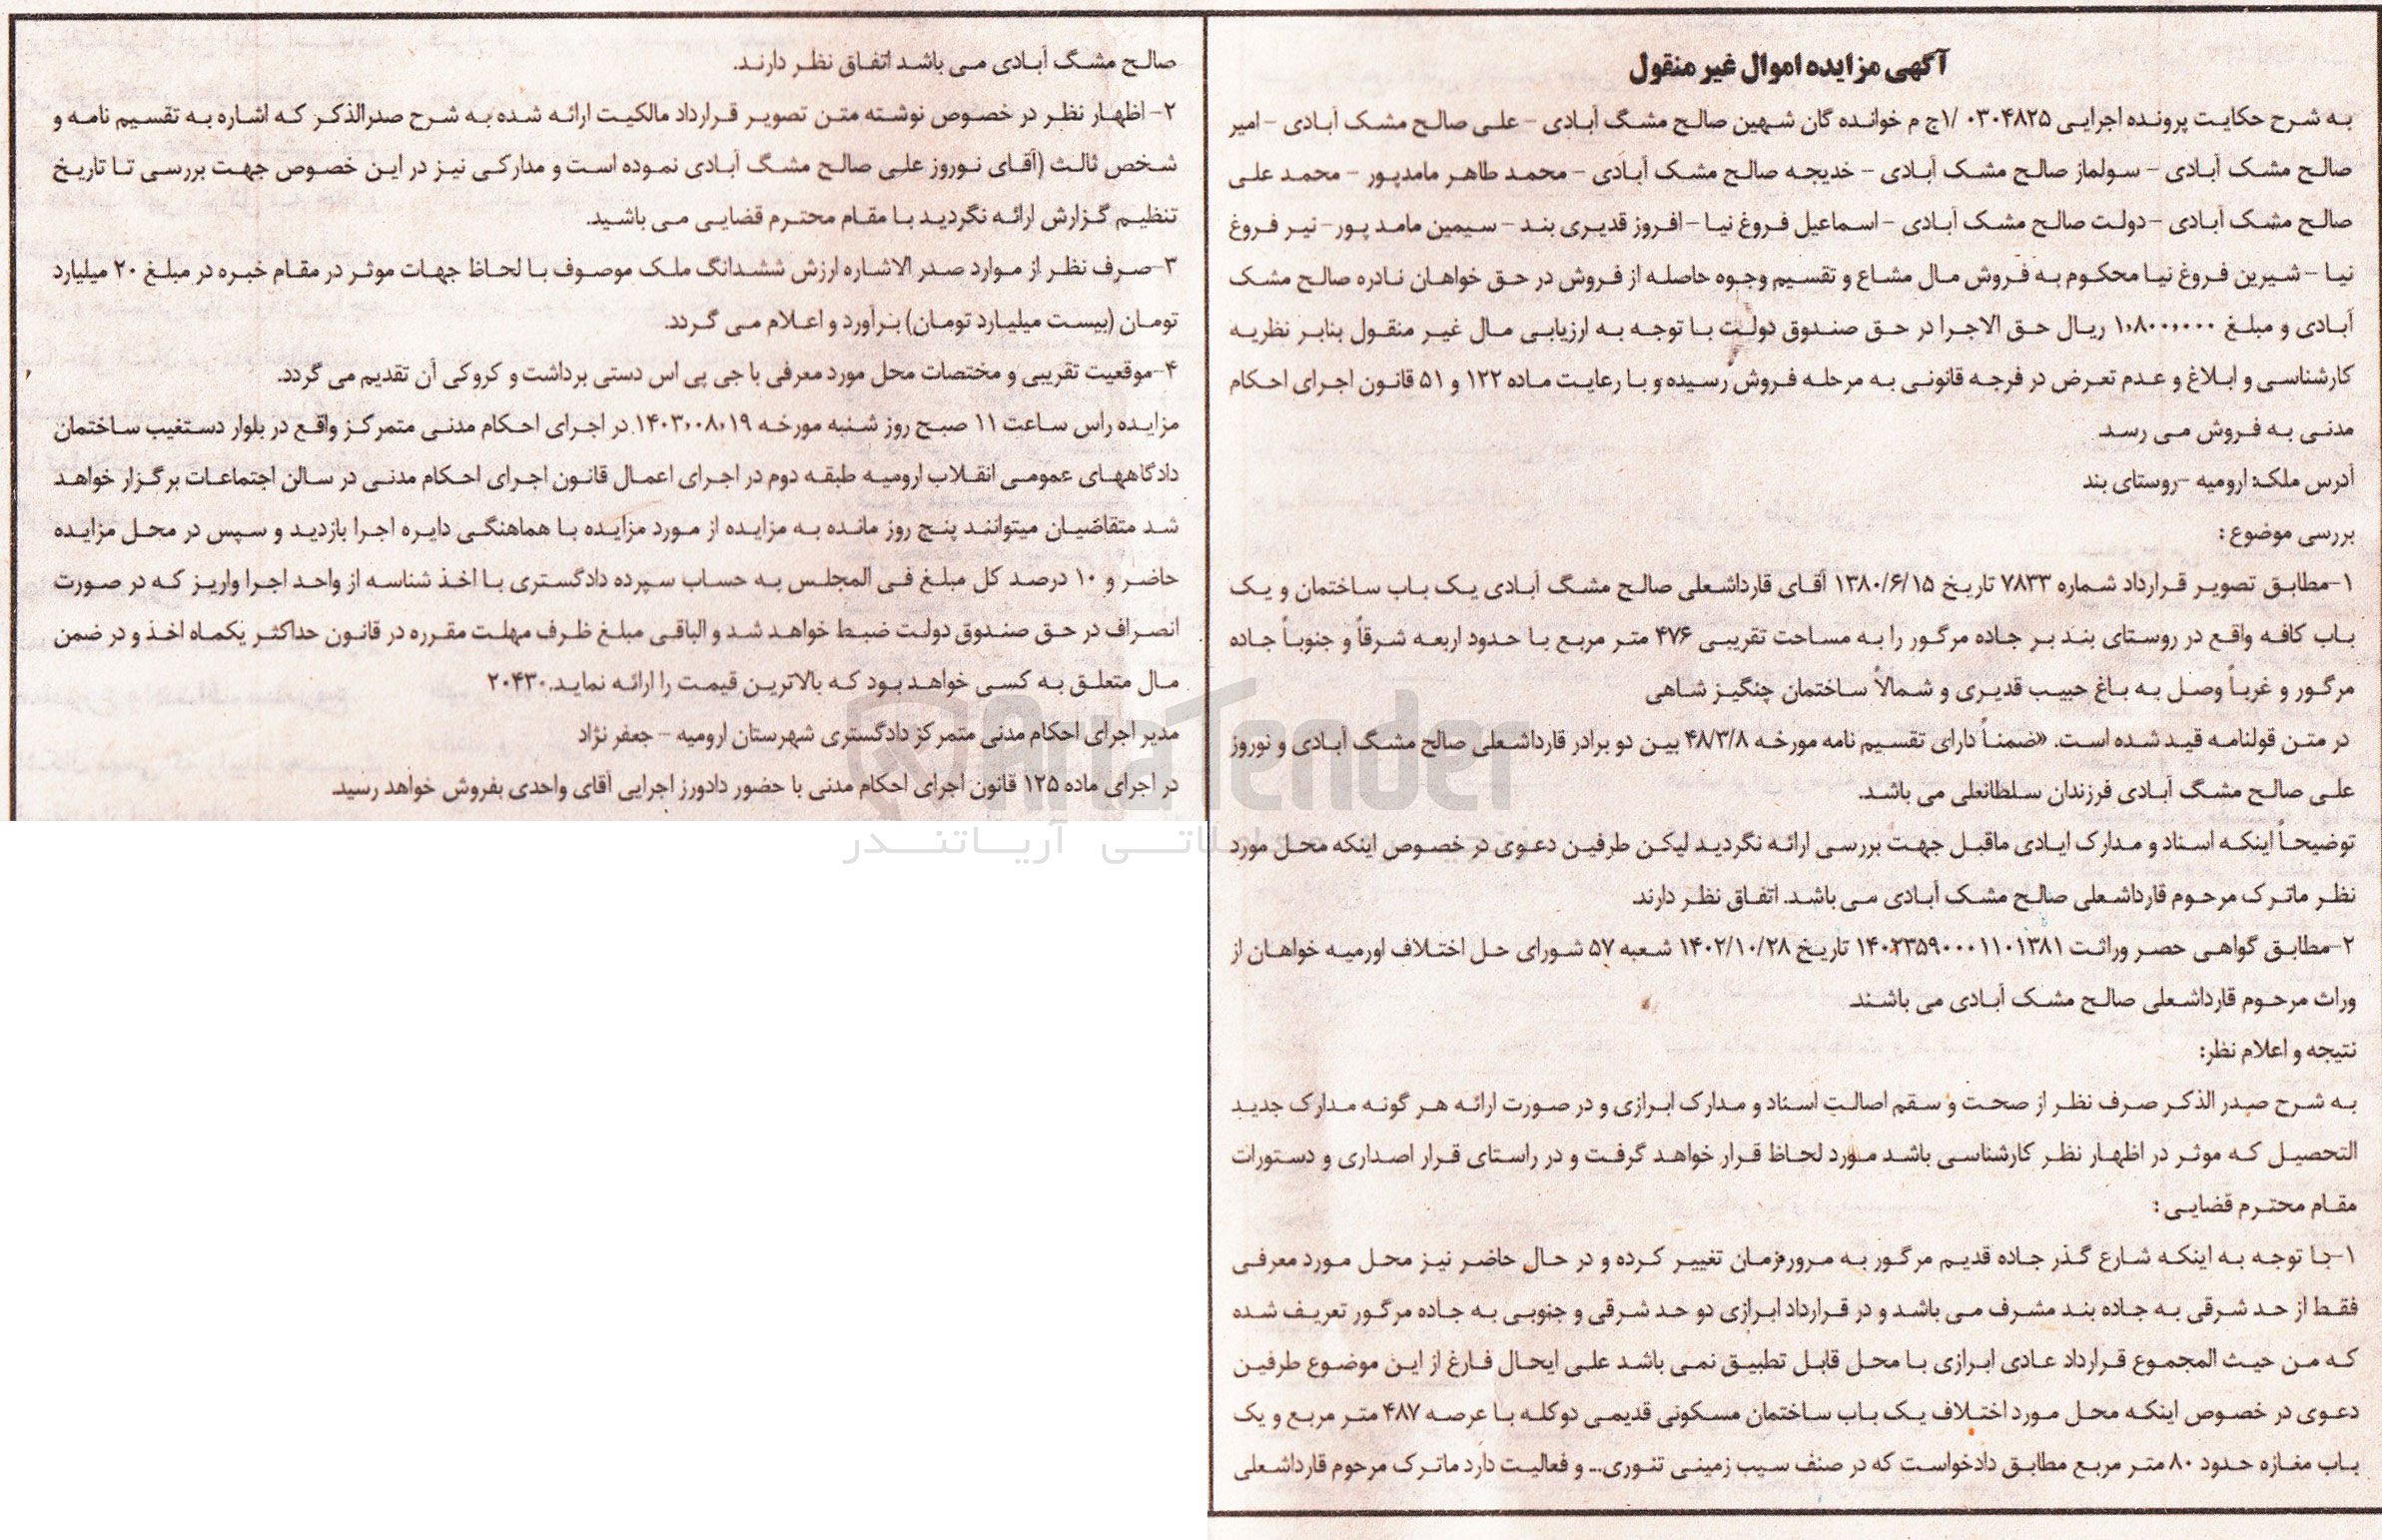 آگهی مزایده اموال غیر منقول
به شرح حکایت پرونده اجرایی ۰۳۰۴۸۲۵ /۱ج م خوانده گان شهین صالح مشگ آبادی – علی صالح مشک آبادی – امیر
صالح مشک آبادی – سولماز صالح مشک آبادی – خدیجه صالح مشک آبادی – محمد طاهر مامدپور – محمد علی
صالح مشک آبادی –دولت صالح مشک آبادی – اسماعیل فروغ نیا – افروز قدیری بند – سیمین مامد پور– نیر فروغ
نیا – شیرین فروغ نیا محکوم به فروش مال مشاع و تقسیم وجوه حاصله از فروش در حق خواهان نادره صالح مشک
آبادی و مبلغ ۱،۸۰۰،۰۰۰ ریال حق الاجرا در حق صندوق دولت با توجه به ارزیابی مال غیر منقول بنابر نظریه
کارشناسی و ابلاغ و عدم تعرض در فرجه قانونی به مرحله فروش رسیده و با رعایت ماده ۱۲۲ و ۵۱ قانون اجرای احکام
مدنی به فروش می رسد.
آدرس ملک: ارومیه –روستای بند
بررسی موضوع :
۱–مطابق تصویر قرارداد شماره ۷۸۳۳ تاریخ ۱۳۸۰/۶/۱۵ آقای قارداشعلی صالح مشگ آبادی یک باب ساختمان و یک
باب کافه واقع در روستای بند بر جاده مرگور را به مساحت تقریبی ۴۷۶ متر مربع با حدود اربعه شرقاً و جنوباً جاده
مرگور و غرباً وصل به باغ حبیب قدیری و شمالاً ساختمان چنگیز شاهی
در متن قولنامه قید شده است. «ضمناً دارای تقسیم نامه مورخه ۴۸/۳/۸ بین دو برادر قارداشعلی صالح مشگ آبادی و نوروز
علی صالح مشگ آبادی فرزندان سلطانعلی می باشد.
توضیحاً اینکه اسناد و مدارک ایادی ماقبل جهت بررسی ارائه نگردید لیکن طرفین دعوی در خصوص اینکه محل مورد
نظر ماترک مرحوم قارداشعلی صالح مشک آبادی می باشد. اتفاق نظر دارند.
۲–مطابق گواهی حصر وراثت ۱۴۰۲۳۵۹۰۰۰۱۱۰۱۳۸۱ تاریخ ۱۴۰۲/۱۰/۲۸ شعبه ۵۷ شورای حل اختلاف اورمیه خواهان از
وراث مرحوم قارداشعلی صالح مشک آبادی می باشند.
نتیجه و اعلام نظر:
به شرح صدر الذکر صرف نظر از صحت و سقم اصالت اسناد و مدارک ابرازی و در صورت ارائه هر گونه مدارک جدید
التحصیل که موثر در اظهار نظر کارشناسی باشد مورد لحاظ قرار خواهد گرفت و در راستای قرار اصداری و دستورات
مقام محترم قضایی :
۱–با توجه به اینکه شارع گذر جاده قدیم مرگور به مرورزمان تغییر کرده و در حال حاضر نیز محل مورد معرفی
فقط از حد شرقی به جاده بند مشرف می باشد و در قرارداد ابرازی دو حد شرقی و جنوبی به جاده مرگور تعریف شده
که من حیث المجموع قرارداد عادی ابرازی با محل قابل تطبیق نمی باشد علی ایحال فارغ از این موضوع طرفین
دعوی در خصوص اینکه محل مورد اختلاف یک باب ساختمان مسکونی قدیمی دوکله با عرصه ۴۸۷ متر مربع و یک
باب مغازه حدود ۸۰ متر مربع مطابق دادخواست که در صنف سیب زمینی تنوری... و فعالیت دارد ماترک مرحوم قارداشعلی
صالح مشگ آبادی می باشد اتفاق نظر دارند.
۲– اظهار نظر در خصوص نوشته متن تصویر قرارداد مالکیت ارائه شده به شرح صدرالذکر که اشاره به تقسیم نامه و
شخص ثالث (آقای نوروز علی صالح مشگ آبادی نموده است و مدارکی نیز در این خصوص جهت بررسی تا تاریخ
تنظیم گزارش ارائه نگردید با مقام محترم قضایی می باشید.
۳–صرف نظر از موارد صدر الاشاره ارزش ششدانگ ملک موصوف با لحاظ جهات موثر در مقام خبره در مبلغ ۲۰ میلیارد
تومان (بیست میلیارد تومان) برآورد و اعلام می گردد.
۴–موقعیت تقریبی و مختصات محل مورد معرفی با جی پی اس دستی برداشت و کروکی آن تقدیم می گردد.
مزایده راس ساعت ۱۱ صبح روز شنبه مورخه ۱۴۰۳،۰۸،۱۹ در اجرای احکام مدنی متمرکز واقع در بلوار دستغیب ساختمان
دادگاههای عمومی انقلاب ارومیه طبقه دوم در اجرای اعمال قانون اجرای احکام مدنی در سالن اجتماعات برگزار خواهد
شد متقاضیان میتوانند پنج روز مانده به مزایده از مورد مزایده با هماهنگی دایره اجرا بازدید و سپس در محل مزایده
حاضر و ۱۰ درصد کل مبلغ فی المجلس به حساب سپرده دادگستری با اخذ شناسه از واحد اجرا واریز که در صورت
انصراف در حق صندوق دولت ضبط خواهد شد و الباقی مبلغ ظرف مهلت مقرره در قانون حداکثر یکماه اخذ و در ضمن
مال متعلق به کسی خواهد بود که بالاترین قیمت را ارائه نماید.۲۰۴۳۰
مدیر اجرای احکام مدنی متمرکز دادگستری شهرستان ارومیه – جعفر نژاد
در اجرای ماده ۱۲۵ قانون اجرای احکام مدنی با حضور دادورز اجرایی آقای واحدی بفروش خواهد رسید.
AriaTender
آریاتندر